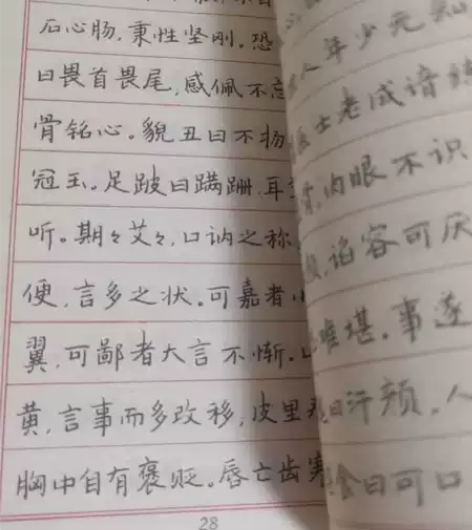 石心肠,秉性坚刚。恐
曰畏首畏尾,感佩不忘
骨铭心。貌丑曰不扬
冠玉。足跛曰蹒跚,耳
听。期々艾々,口讷之称
便,言多之状。可嘉者小
翼,可鄙者大言不惭。
黄,言事而多改移,皮里
胸中自有褒贬。唇亡齿寒
28
人年少无知
士老成谙
肉眼不识
谄容可厌
难堪。事遂
曰汗颜,人
食曰可口